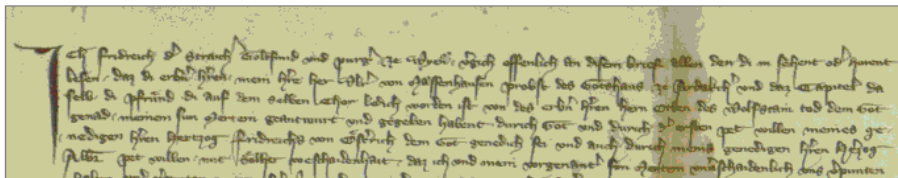 Ich Fridreich der Strach Goltsmid vnd purger ze Wyenn vergich offenlich an disem brief Allen den di in sehent oder horent
lesen daz di erbern herren mein herre her Vlr von Massenhausen probst des Gotshaus ze Ardakcher vnd daz Capitel da
selb di pfruend di auf dem selben Chor ledich worden ist von des erbern herren hern Orten des Wolfstain tod dem Got
genad meinem sun Merten geantwurt vnd gegeben habent durch Got vnd durch der ersten pet willen meines ge
nedigen herren Hertzog Fridreichs von Osterrich dem Got genedich sei vnd auch durch meins genedigen herren Hertzog
Albr pet willen mit solher weschaidenhait daz ich vnd mein vorgenanter sun Merten vnuerschaidenlich vns verpunten